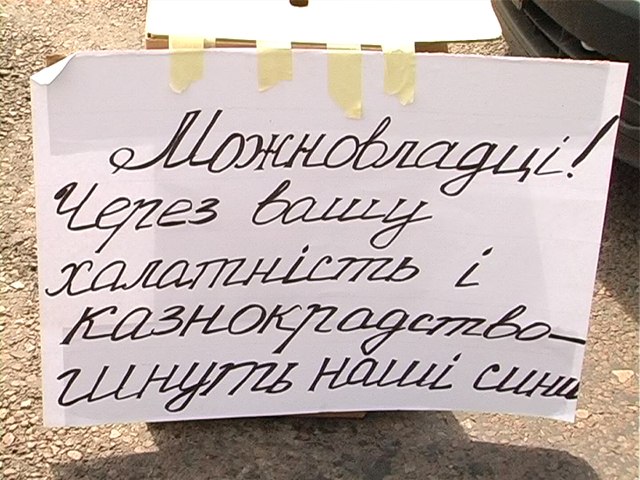 Можновладці!
Через вашу
халатність і
казнокрадство—
гинуть наші сини